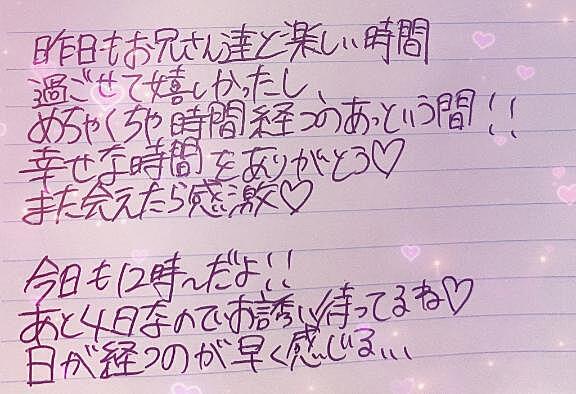 昨日もお兄さん達と楽しい時間
過ごせて嬉しかったし、
めちゃくちゃ時間経つのあっという間!!
幸せな時間をありがとう♡
また会えたら感激♡
今日も12時〜だよ!!
あと4日なのでお誘い待ってるね♡
日が経つのが早く感じる...